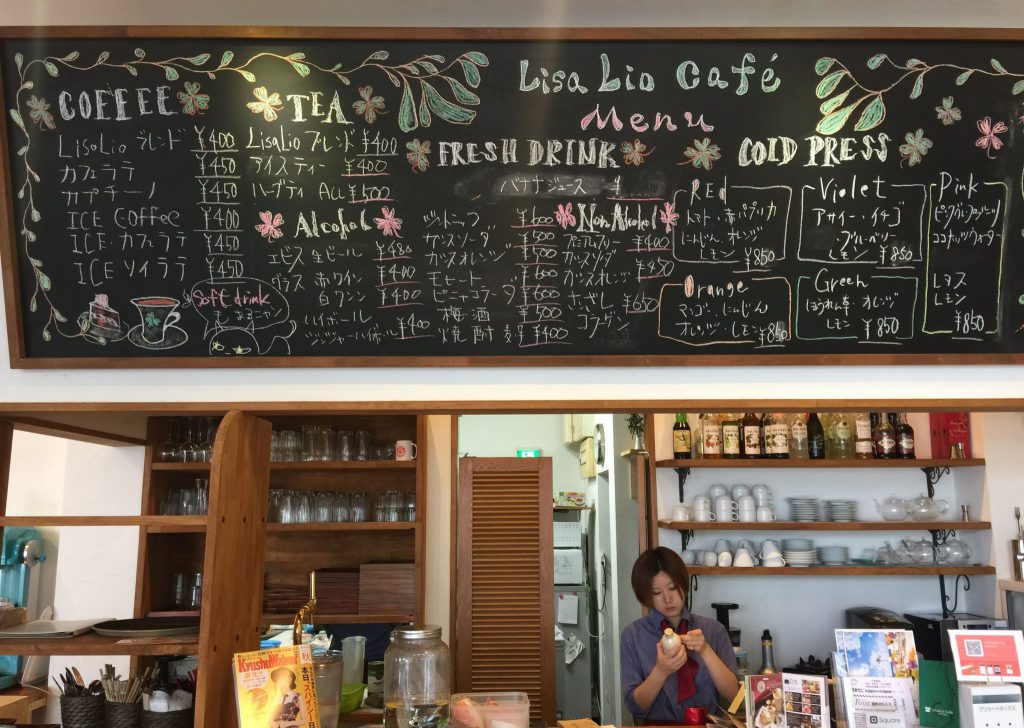 Lisa Lio Café
Menu
COFFEE
LisaLio ブレンド ¥400
カフェラテ ¥450
カプチーノ ¥450
ICE Coffee ¥400
ICE・カフェラテ ¥450
ICE ソイラテ ¥450
Soft drink
TEA
LisaLio ブレンド ¥400
アイスティー ¥400
ハーブティ ALL ¥500
Alcohol
エビス 生ビール ¥480
グラス 赤ワイン ¥400
白ワイン ¥400
ハイボール
ジンジャーハイボール ¥400
FRESH DRINK
バナナジュース ¥
ジントニック ¥600
カシスソーダ ¥500
カシスオレンジ ¥500
モヒート ¥600
ピニャコラーダ ¥600
梅酒 ¥500
焼酎 ¥400
Non Alcohol
プレミアムフリー ¥400
カシスソーダ
カシスオレンジ ¥450
¥650
コラーゲン
COLD PRESS
REd
トマト・赤パプリカ
にんじん オレンジ
レモン ¥850
Violet
アサイー・イチゴ
ブルーベリー
¥850
Pink
ピンクグレープフルーツ
ココナッツウォーター
レタス
レモン
¥850
Orange
マンゴー にんじん
オレンジ レモン ¥850
Green
ほうれん草 オレンジ
レモン ¥850
Kyushu Walker
Square